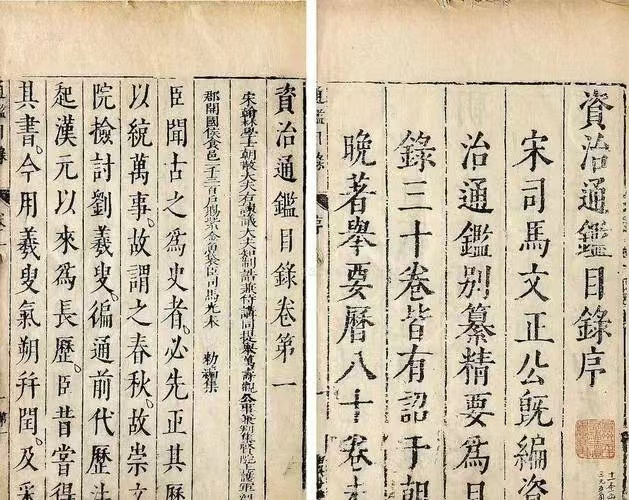 資治通鑑目錄序
宋司馬文正公旣編資
治通鑑别纂精要爲目
錄三十卷皆有詔于朝
晚著舉要曆八十卷
通鑑目錄 序
資治通鑑目錄卷第一
宋翰林學士朝散大夫右諫議大夫知制誥兼侍講同提舉萬壽觀公事兼判集賢院上護軍
郡開國侯食邑一千三百戶賜紫金魚袋臣司馬光奉 勅編集
臣聞古之爲史者必先正其
以統萬事故謂之春秋故崇文
院檢討劉羲叟徧通前代歷法
起漢元以來爲長歷臣昔嘗得
其書今用羲叟氣朔幷閏及采
通鑑目錄